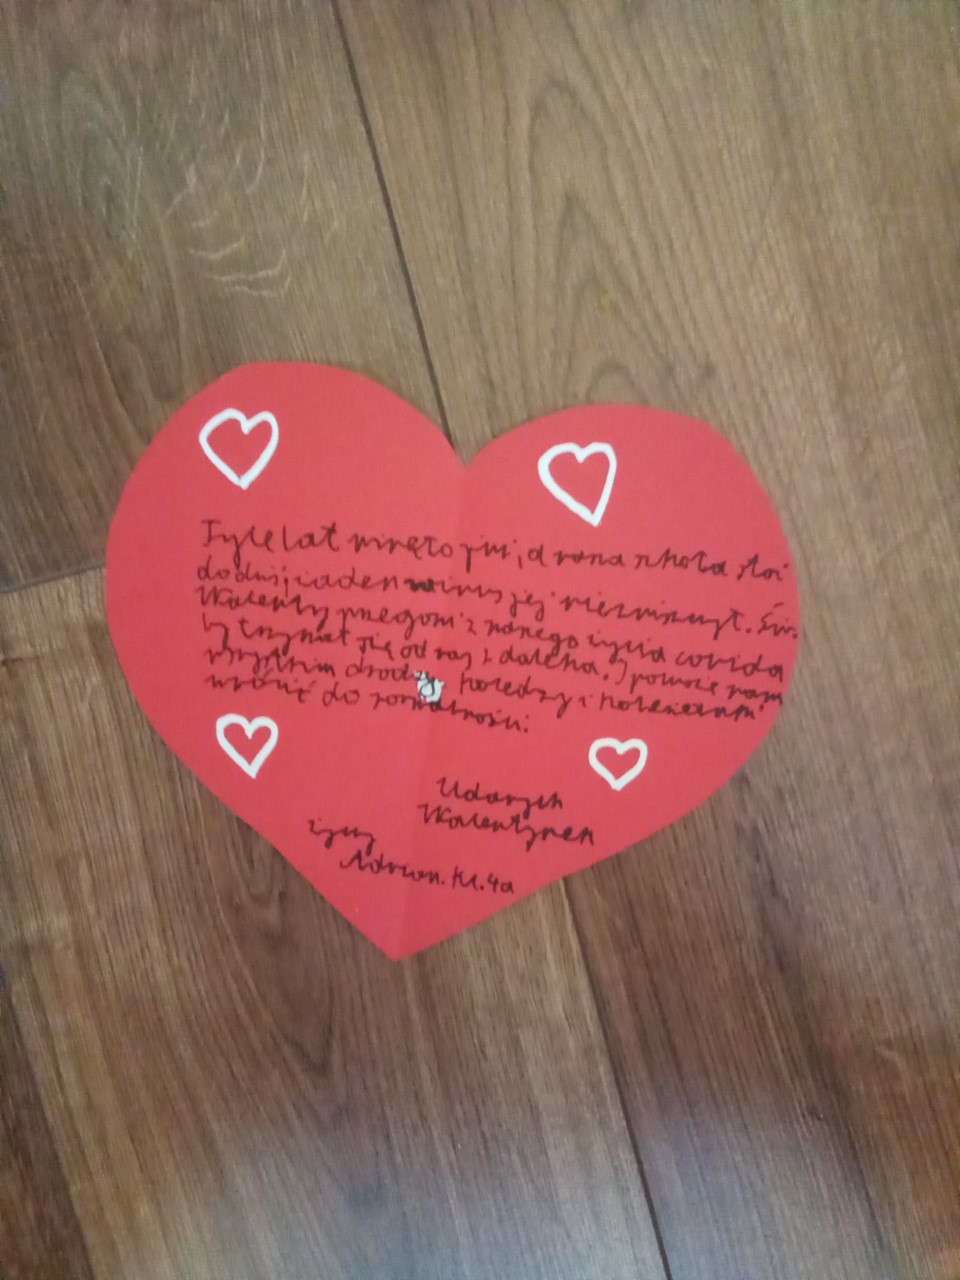 Tyle lat minęło już, a nasa szkoła stoi
do dziś, żaden wirus jej nie zniszczył. Św.
Walenty przegoni z nasego życia covida
by trzymał się od nas z daleka. I pomoże nam
wszystkim drodzy koledzy i koleżanki
wrócić do normalności.
Udanych
Walentynek
życzy
Adrian. kl. 4a